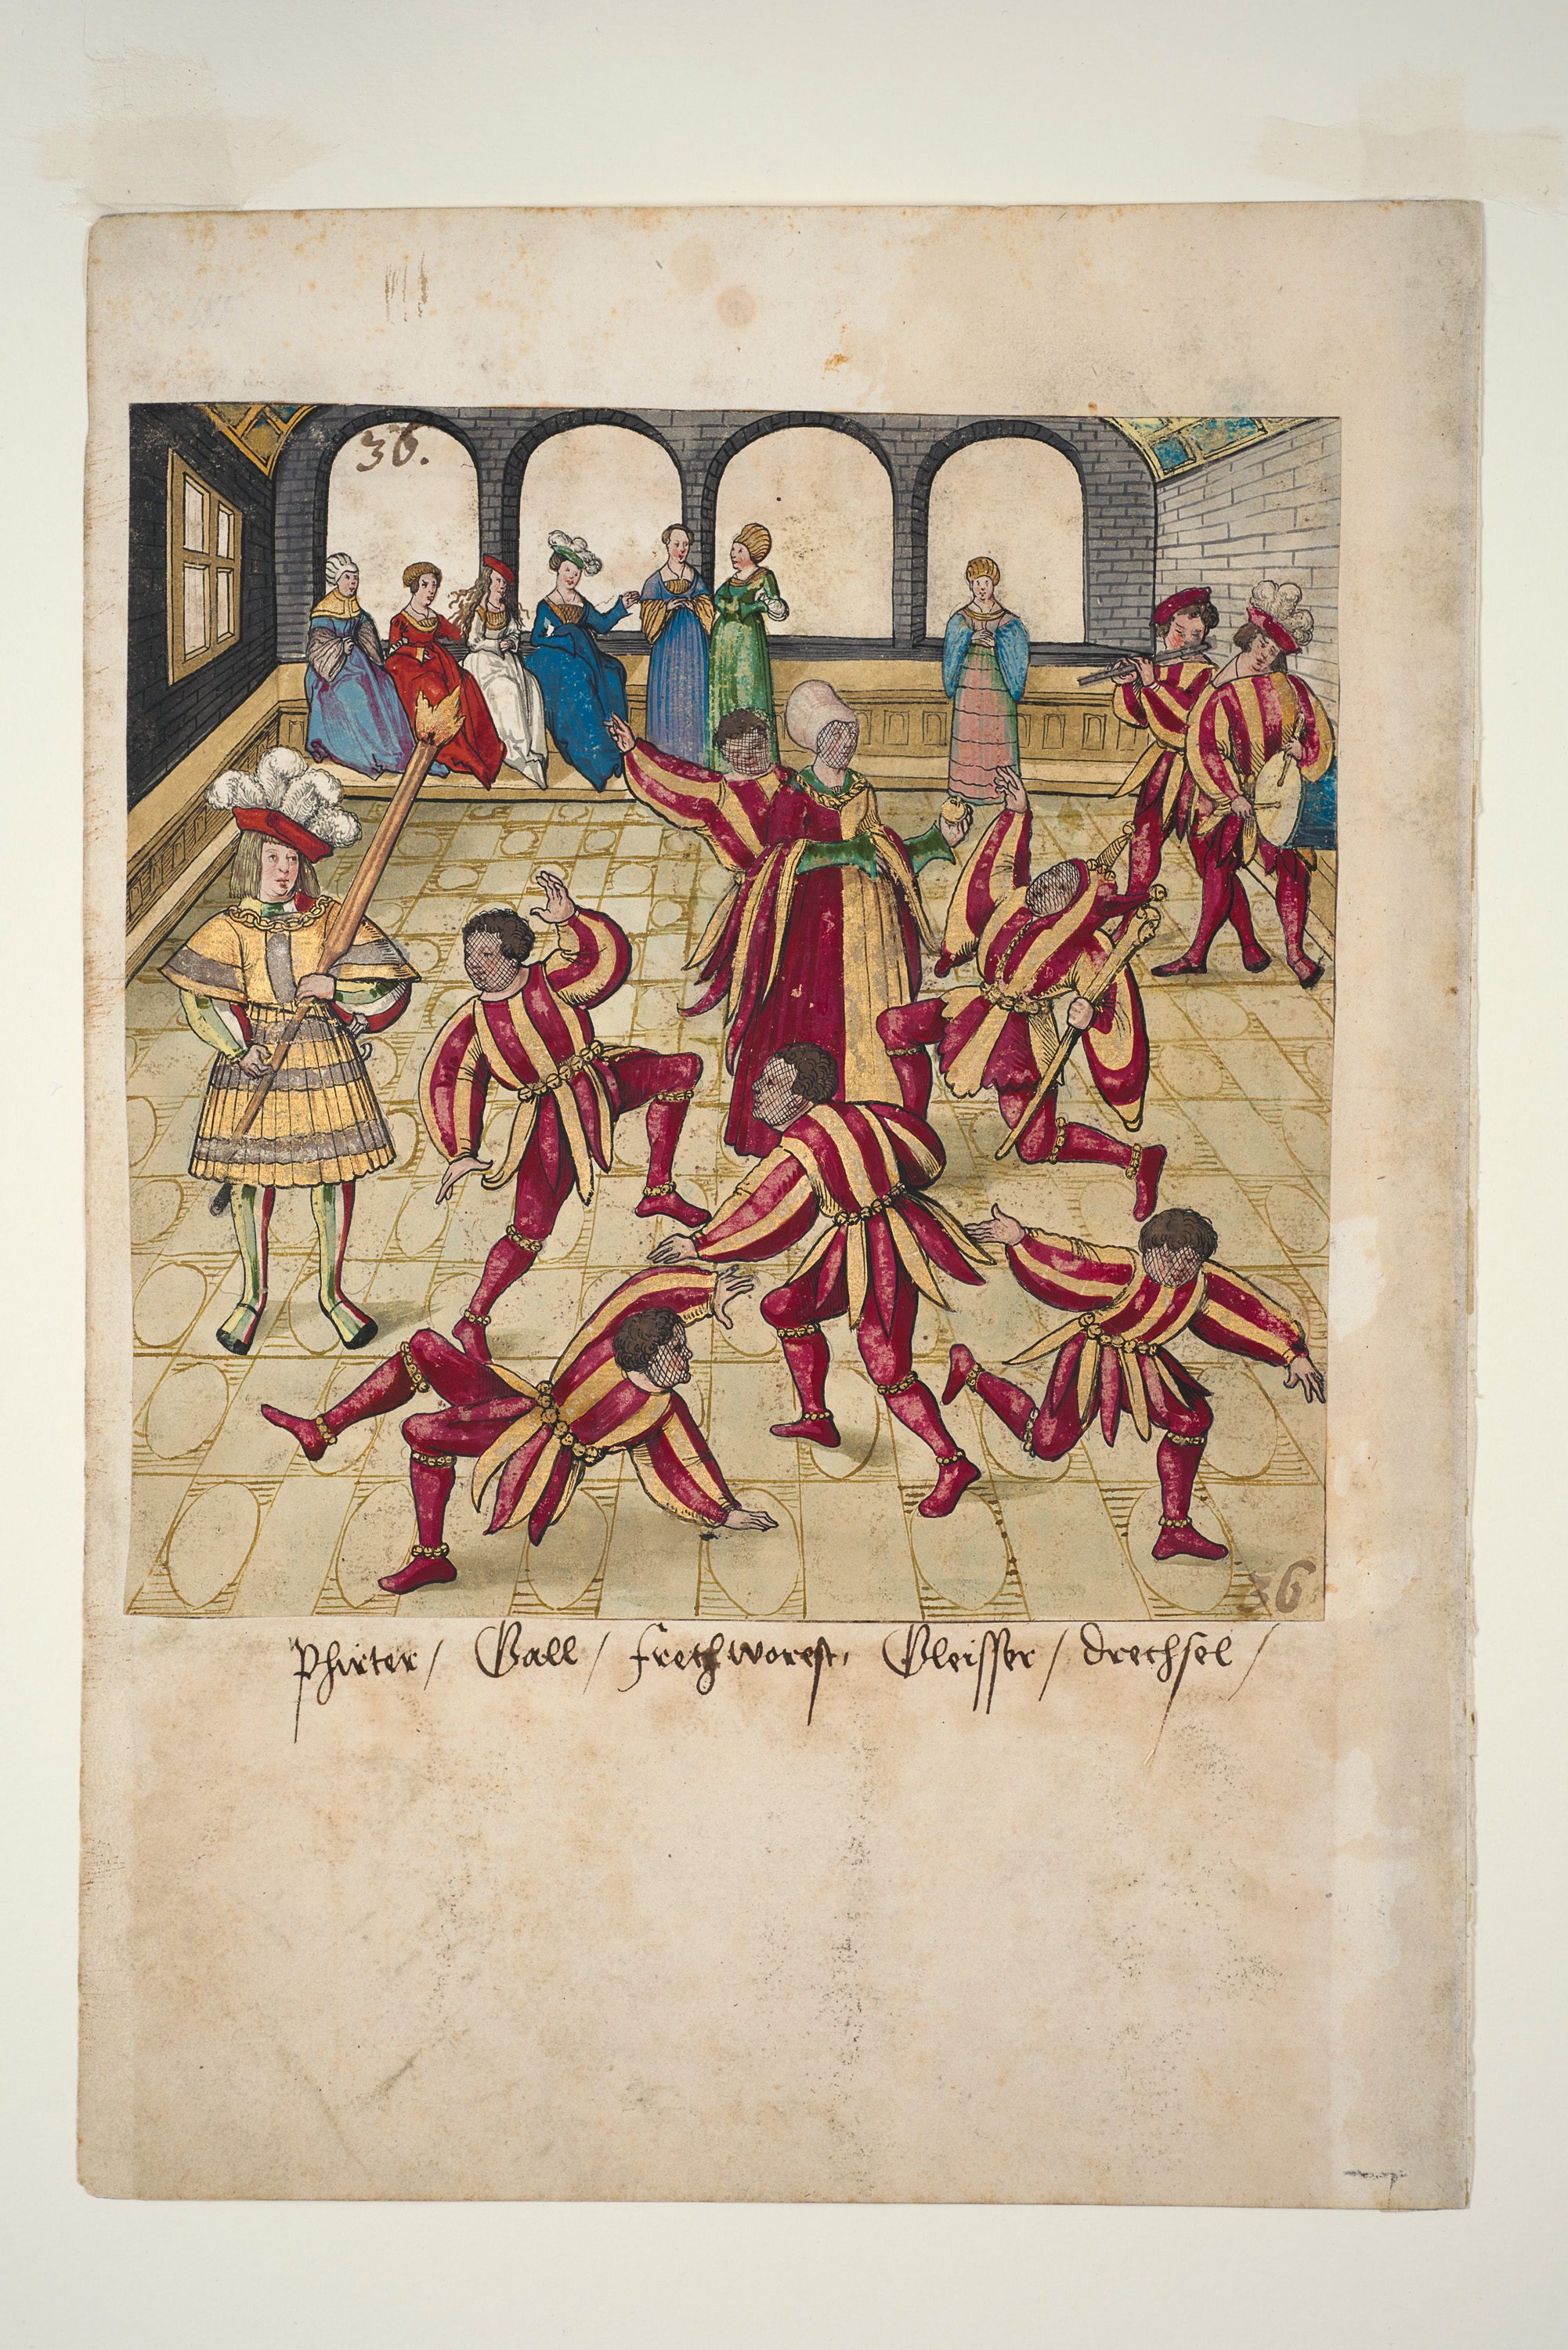 36.
36
Phirter / Gall / Frechworest, Gleisser / Drechsel /